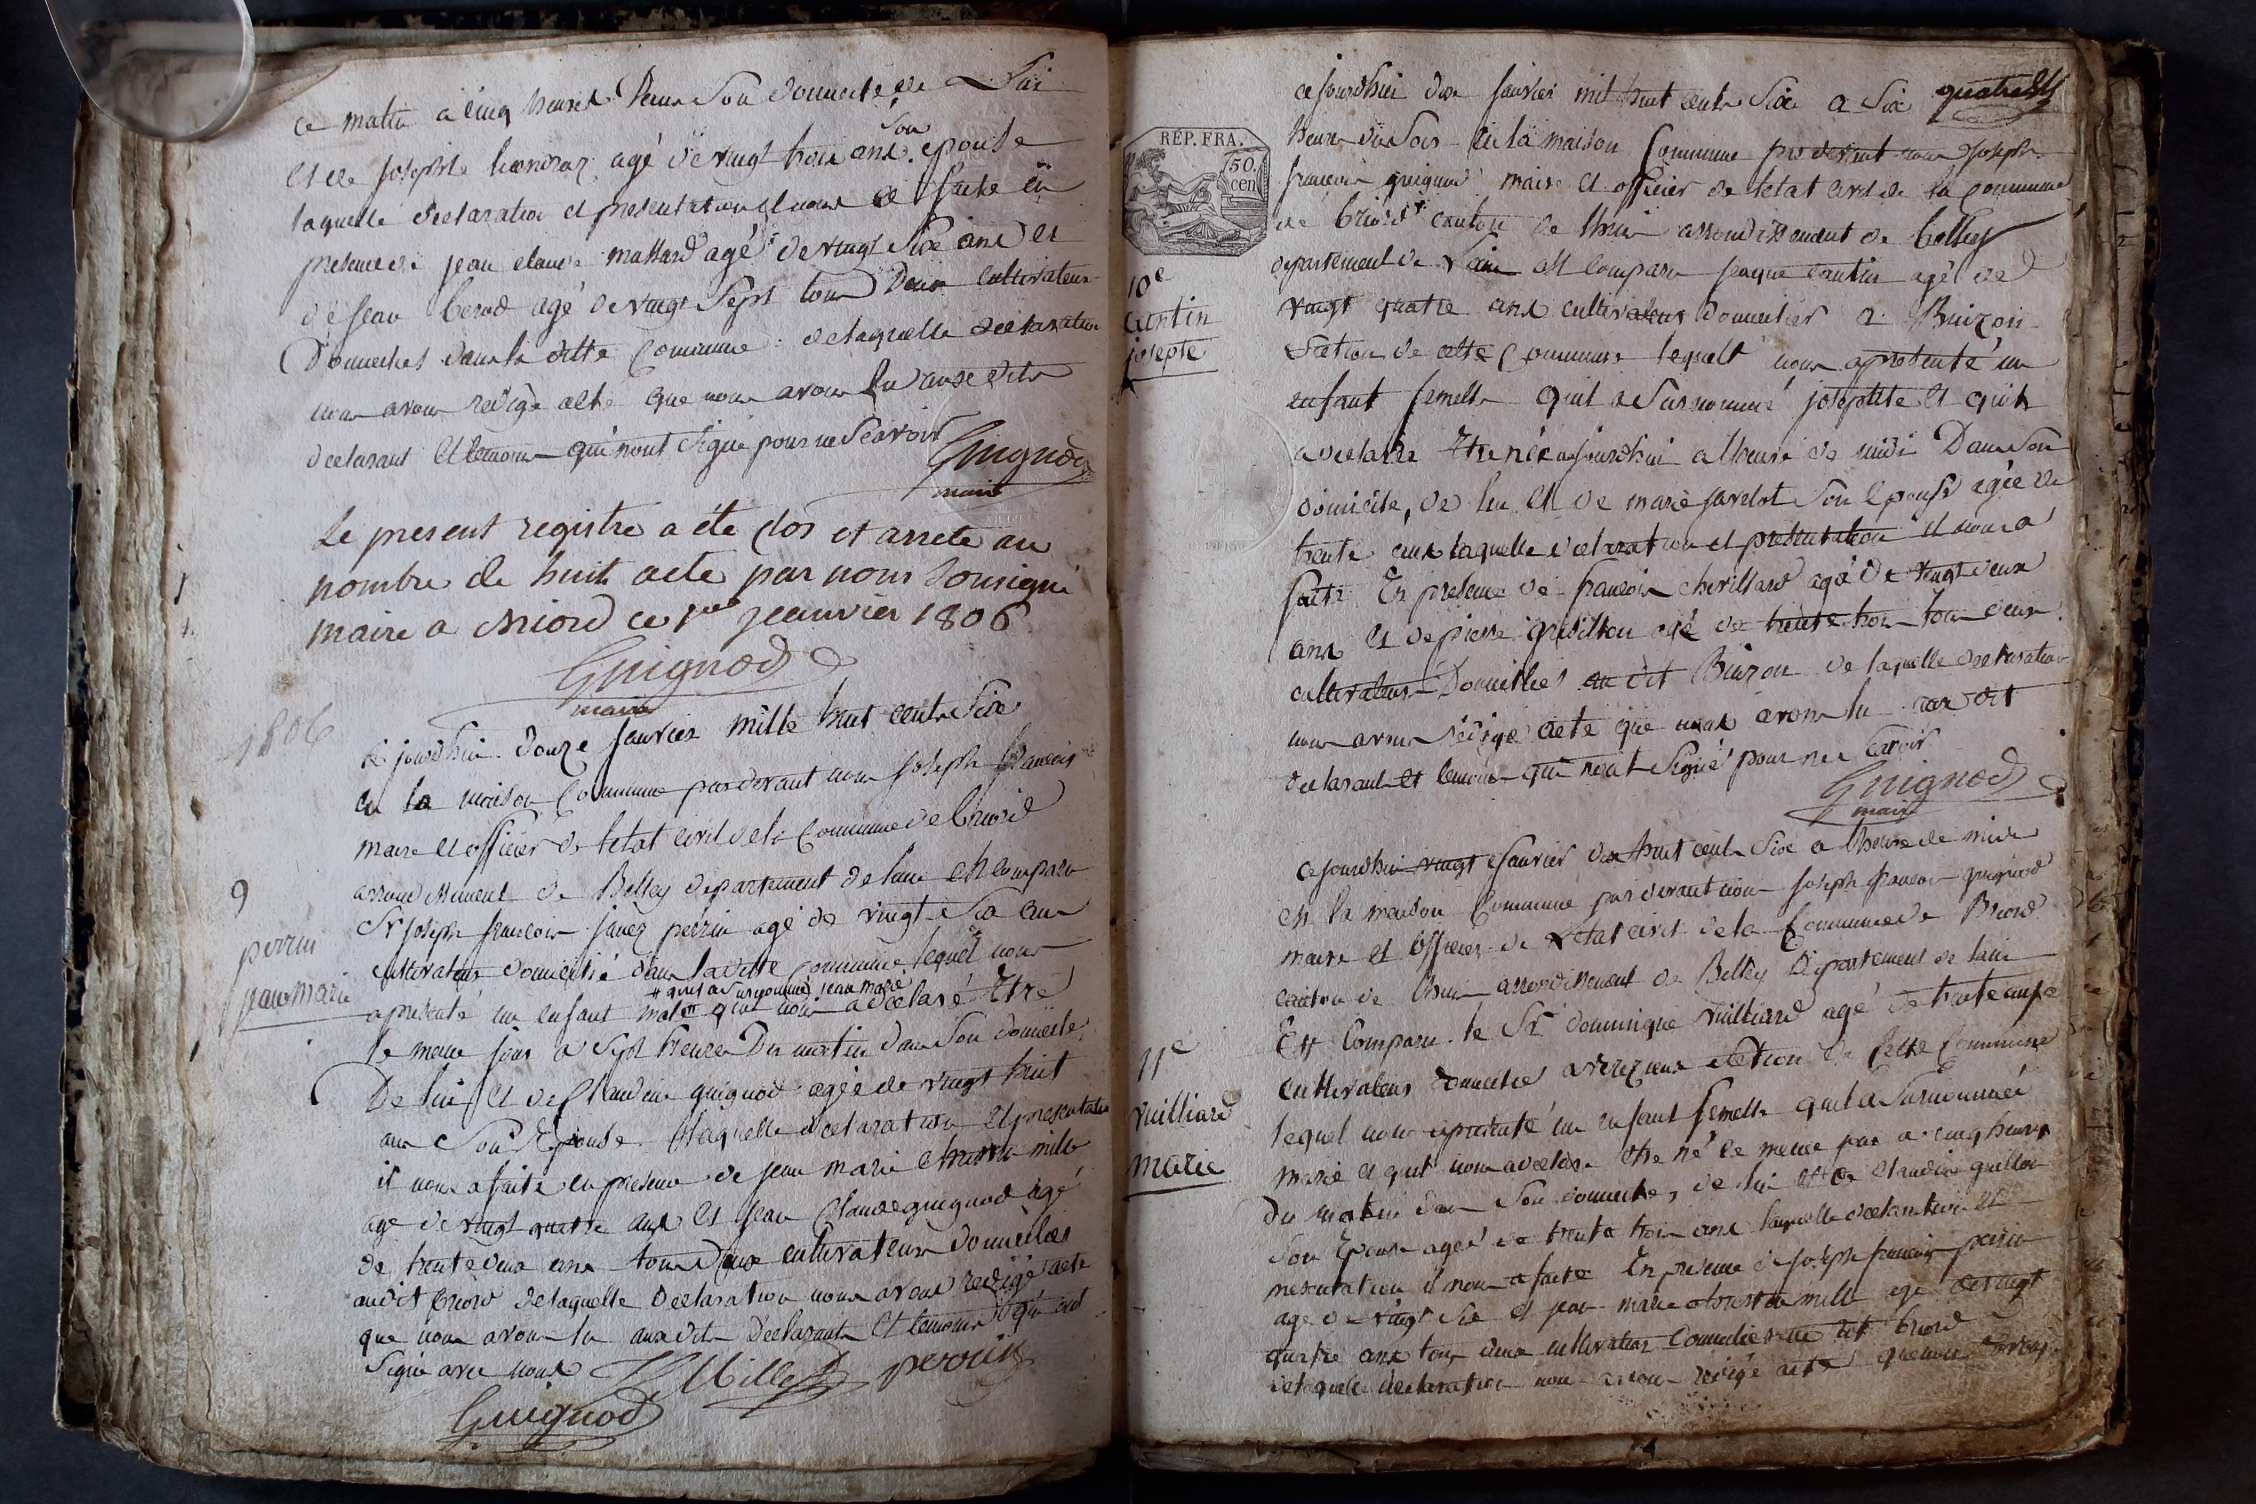 ce matin a cinq heures Dans Son domicile de Lui
et de josephte agé de vingt trois ans Son epouse
laquelle declaration et presentation il nous a faite en
presence de jean claude massard agé de vingt Six ans et
de jean berod agé de vingt Sept tous Deux cultivateurs
Domiciliés dans la ditte Commune de laquelle declaration
nous avons redigé acte que nous avons lu aux dits
declarant et temoins qui n'ont Signe pour ne Scavoir
Guignod
maire
Le present registre a été Clos et arreté au
nombre de huit acte par nous Sousigné
maire a Briord ce 1er jeanvier 1806
Guignod
maire
1806
ce jourdhui douze janvier mille huit cents Six
en la maison Commune pardevant nous joseph francois
maire et officier de letat civil de la Commune de briord
arrondissement de Belley departement de lain est comparu
9
Sr joseph francois perrin agé de vingt Six ans
perrin
jean marie
cultivateur domicilié dans la ditte commune lequel nous
# quil a Surnommé jean marie
a presenté un enfant male # quil nous a declaré Etre
le meme jour a Sept heures Du matin dans Son domicile
De lui et de Claudine guignod agée de vingt huit
ans Son Epouse laquelle declaration et presentation
il nous a faite en presence de jean marie mille
age de vingt quatre ans et jean Claude guignod agé
de trente deux ans tous Deux cultivateurs domiciliés
audit briord de laquelle Declaration nous avons redigé acte
que nous avons lu aux dits Declarants et temoins qui ont
Signé avec nous Mille perrin
Guignod
ce jourdhui dix janvier mil huit cents Six a Six
heures du Soir en la maison Commune par devant nous joseph
RÉP. FRA.
50.
cen
francois guignod maire et officier de letat civil de la commune
de briord canton de lhuis arrondissement de belley
departement de Lain est comparu jaque cantin agé de
10e
Cantin
josepte
vingt quatre ans cultivateur domicilier a Buizon
Section de cette Commune lequelt nous a presenté un
enfant femelle quil a Surnommé josephte et quil
a declaré Etre née aujourdhui a lheure de midi Dans Son
domicile, de lui et de marie Son epouse agée de
trente ans laquelle declaration et presentation il nous a
faite En presence de francois chevillard agé de vingt deux
ans et de pierre agé de trente trois tous deux
cultivateurs Domiciliés au dit Buizon de laquelle declaration
nous avons rédigé acte que nous avons lu aux dit
declarant et temoins qui n'ont Signé pour ne Scavoir
Guignod
maire
ce jourdhui vingt janvier huit cents Six a lheure de midi
en la maison Commune par devant nous joseph francois guignod
maire et officier de letat civil de la Commune de Briord
canton de lhuis arrondissement de Belley Departement de lain
Est Comparu le Sr dominique vuilliard agé de trente ans
11e
vuilliard
marie
cultivateur domicilié a verizieux section de cette Commune
lequel nous a presenté un enfant femelle quil a Surnommée
marie et quil nous a declaré etre né le meme jour a cinq heures
Du matin dans Son domicile, de lui et de claudine guillon
Son Epouse agée de trente trois ans laquelle declaration et
presentation il nous a faite En presence de joseph francois perrin
agé de vingt Six et jean marie mille agé de vingt
quatre ans tous deux cultivateurs Domiciliés au dit briord
de laquelle declaration nous avons redigé acte que nous avons